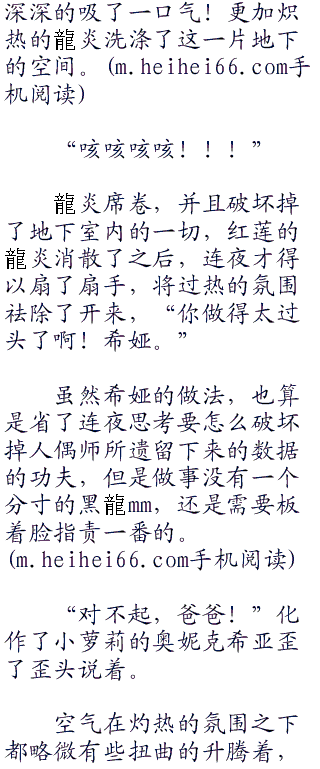 深深的吸了一口气！更加炽
热的龍炎洗涤了这一片地下
的空间。(m.heihei66.com手
机阅读)
“咳咳咳咳！！！”
龍炎席卷，并且破坏掉
了地下室内的一切，红莲的
龍炎消散了之后，连夜才得
以扇了扇手，将过热的氛围
祛除了开来，“你做得太过
头了啊！希娅。”
虽然希娅的做法，也算
是省了连夜思考要怎么破坏
掉人偶师所遗留下来的数据
的功夫，但是做事没有一个
分寸的黑龍mm，还是需要板
着脸指责一番的。
(m.heihei66.com手机阅读)
“对不起，爸爸！”化
作了小萝莉的奥妮克希亚歪
了歪头说着。
空气在灼热的氛围之下
都略微有些扭曲的升腾着，